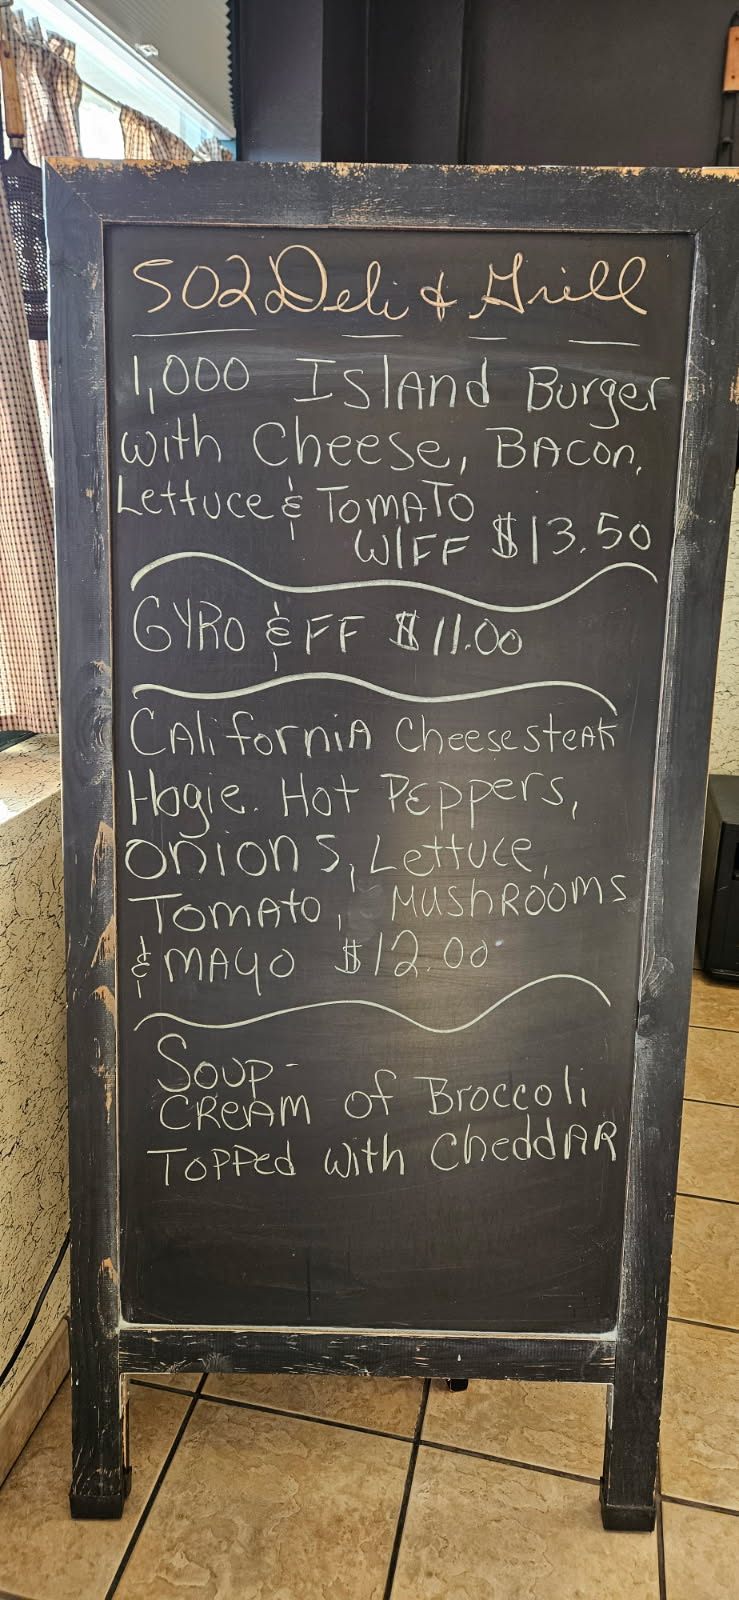 502 Deli & Grill
1,000 Island Burger
with Cheese, Bacon,
Lettuce & Tomato
W/FF $13.50
Gyro & FF $11.00
California Cheesesteak
Hogie. Hot Peppers,
Onions, Lettuce,
Tomato, Mushrooms
& Mayo $12.00
Soup-
Cream of Broccoli
Topped with Cheddar